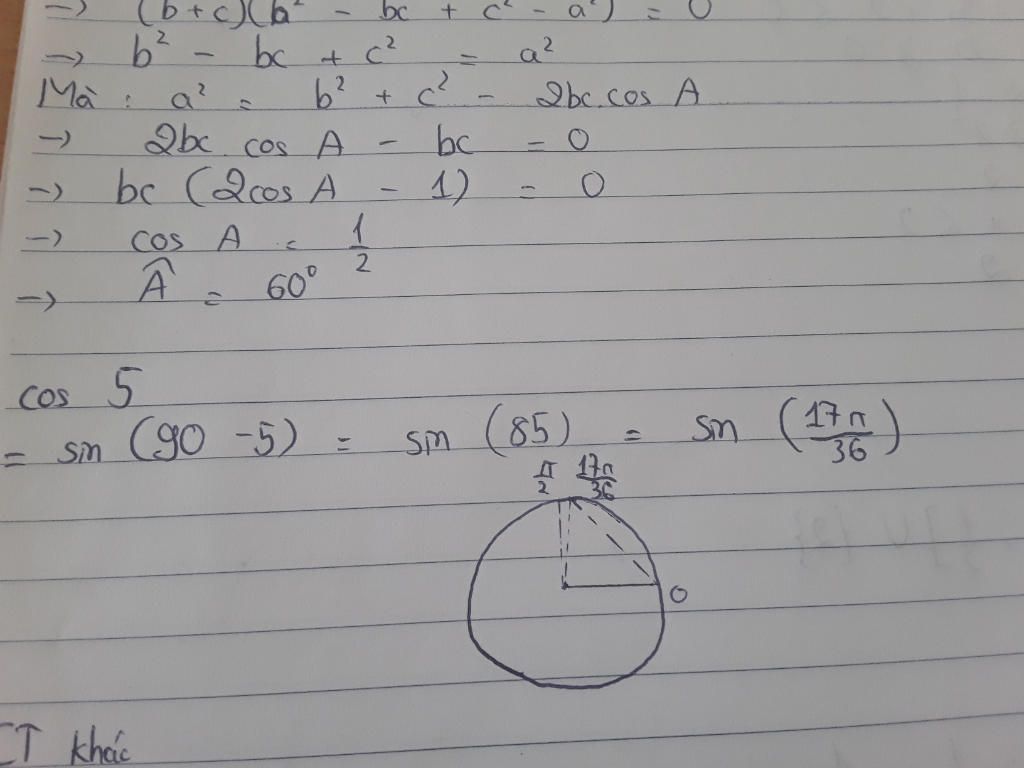 → (b+c)(b² - bc + c² - a²) = 0
→ b² - bc + c² = a²
Mà : a² = b² + c² - 2bc.cos A
→ 2bc cos A - bc = 0
→ bc (2cos A - 1) = 0
→ cos A = 1/2
→ Â = 60°
cos 5
= sin (90 - 5) = sin (85) = sin (17π/36)
π/2 17π/36
0
CT khác